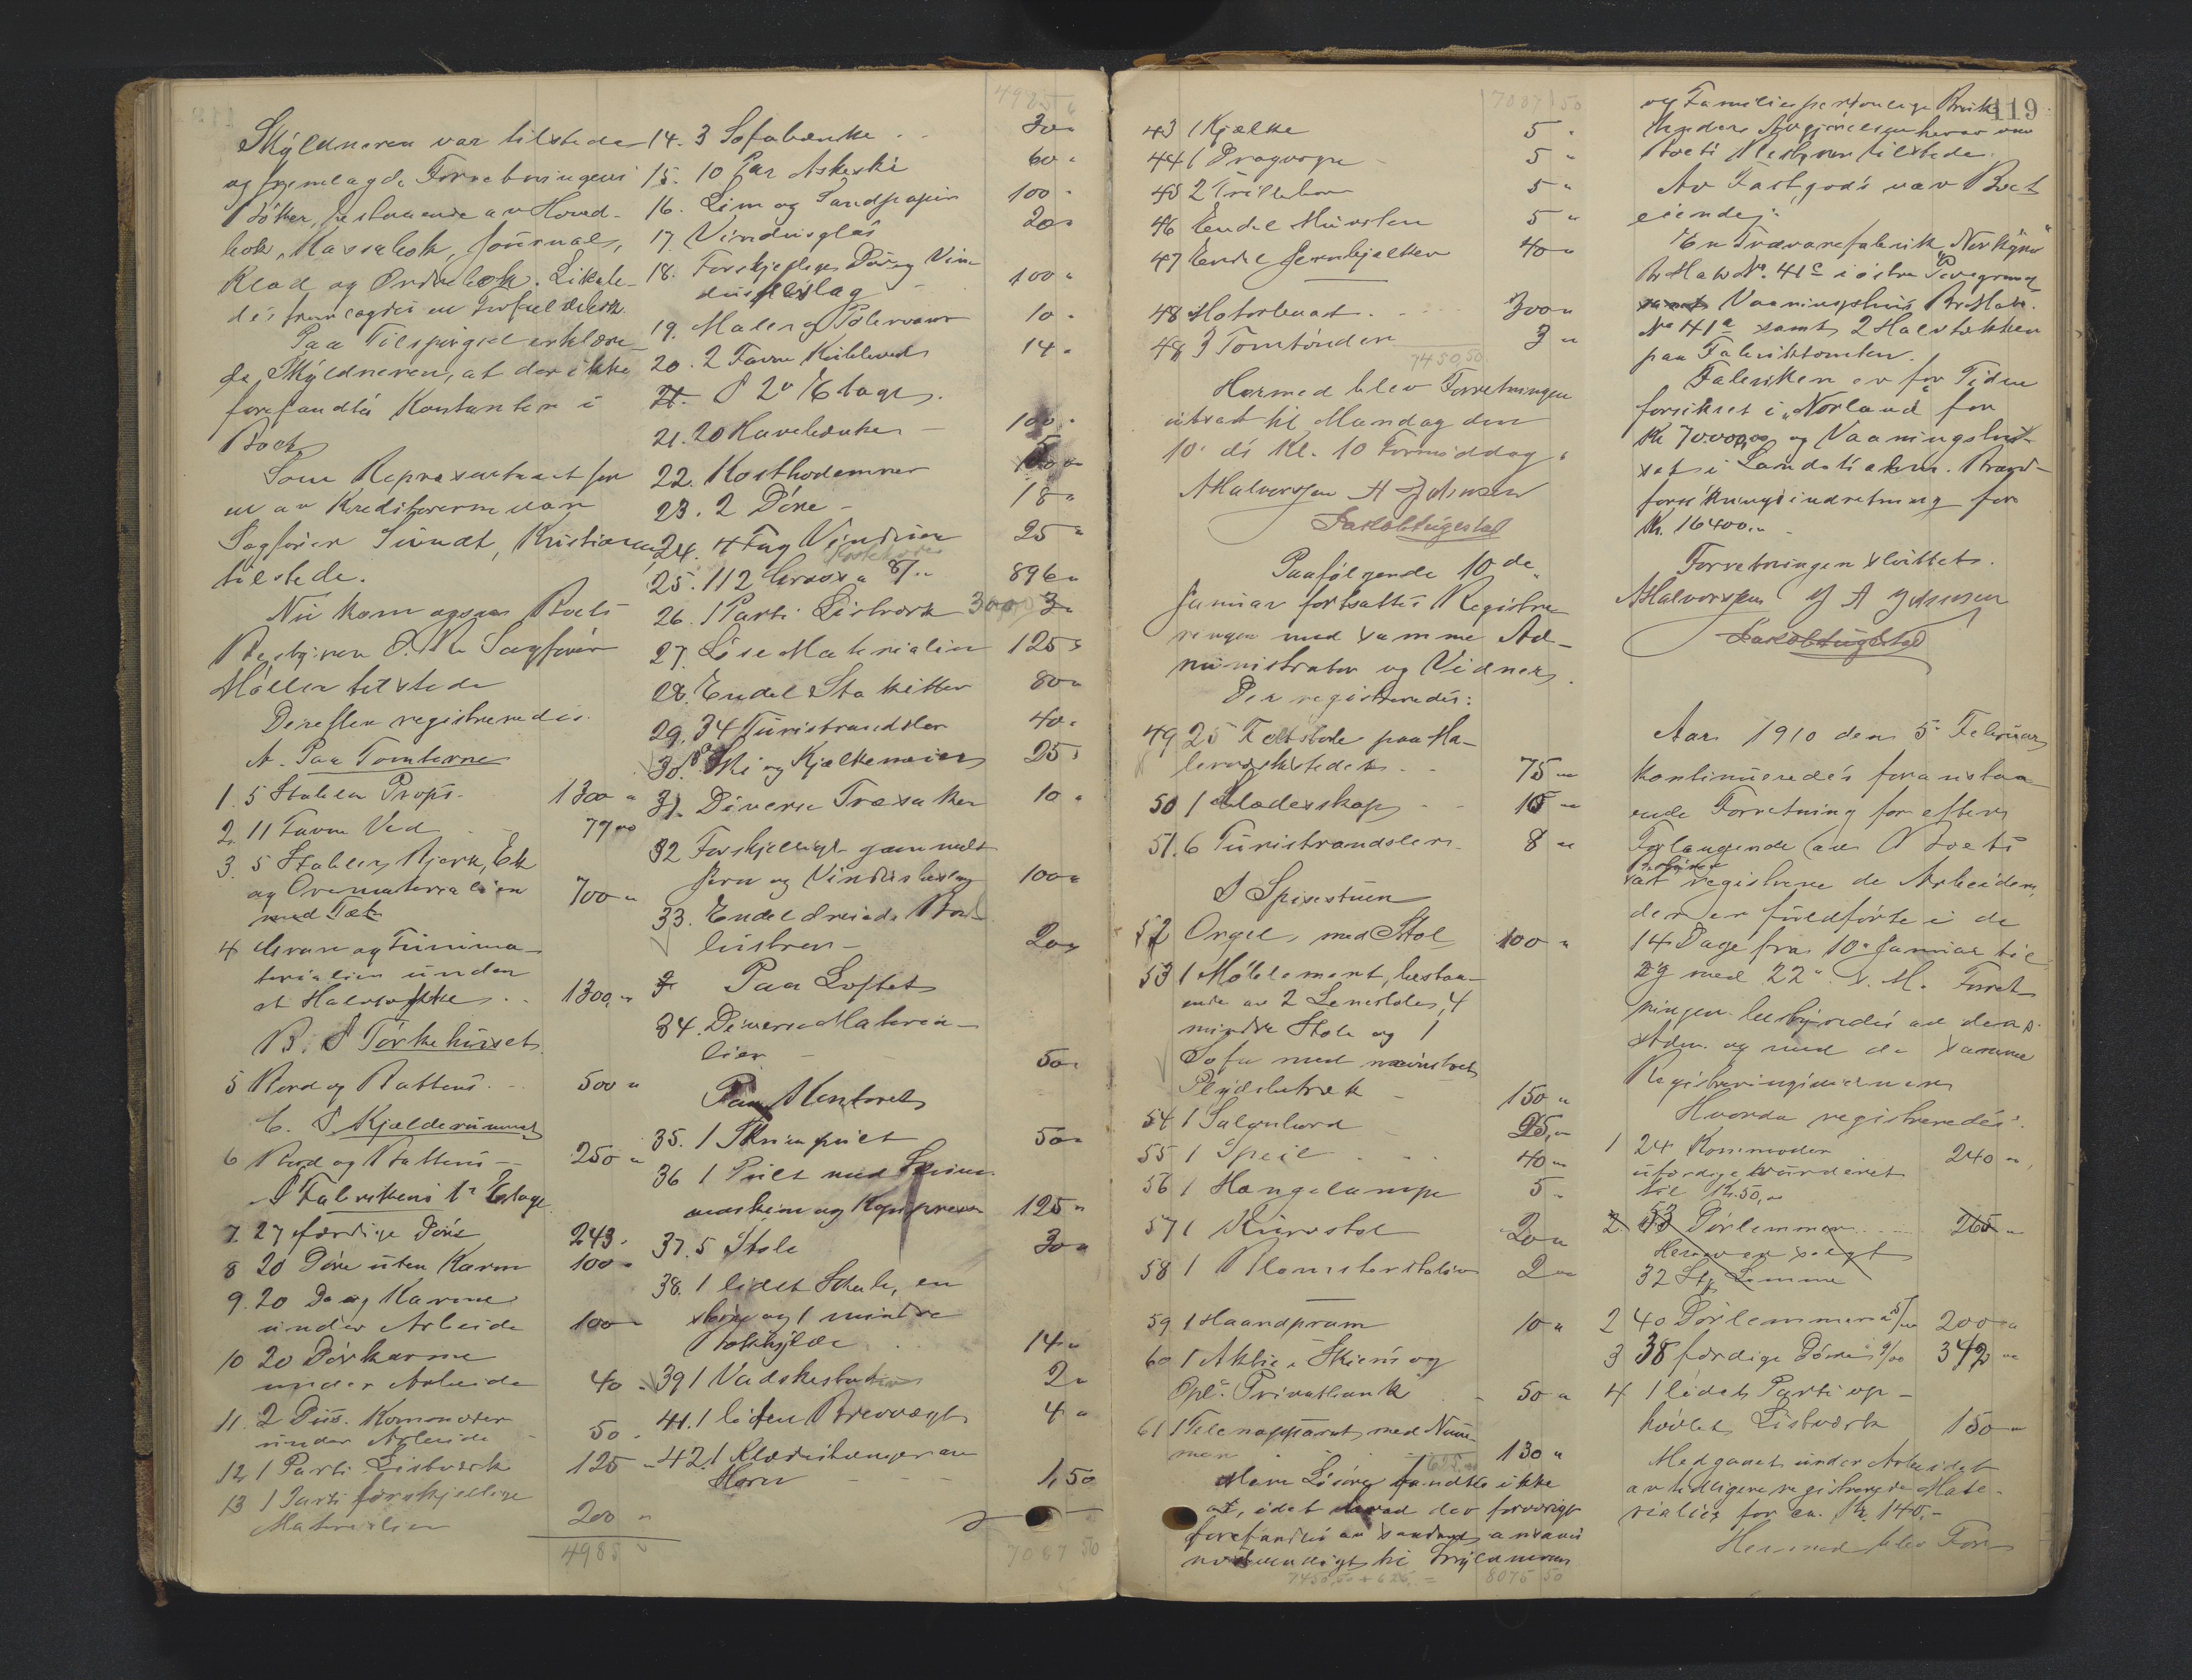 Skyldneren var tilstede
og fremlagde Forretningens
Bøker, bestaaende av Hoved-
bok, Kassabok, Journal,
Klad og Ordrebok. Likele-
des fremlagdes en
Paa Tilspørgsel erklære-
de Skyldneren, at der ikke
forefandtes Kontanter i
Boet.
Som Repræsentant for
en av Kreditorerne var
Sagfører Sundt, Kristiania
tilstede.
Nu kom ogsaa Boets
Bestyrer O. R. Sagfører
Møller tilstede
Derefter registreredes.
A. Paa Tomterne
1. 5 Stabler Props. 1300 "
2. 11 Favne Ved 77 00
3. 5 Stabler Bjerk, Ek
og Orematerialier
med Tak 700 "
4 Grane og Furuma-
terialier under
et Halvtække 1300,"
B. I Tørkehuset
5 Bord og Battens. 500 "
C. I Kjælderummet
6 Bord og Battens 250 "
I Fabrikkens 1ste Etage
7. 27 færdige Døre 243.
8 20 Døre uten Karm 100 "
9. 20 Do og Karme
under Arbeide 100 "
10 20 Dørkarme
under Arbeide 40 "
11. 2 Dus. Komoder
under Arbeide 50.
12 1 Parti Listverk 125 "
13 1 Parti forskjellige
Materialier 200 "
4985 "
4985 "
14. 3 Sofabænke 30 "
15. 10 Par Askeski 60 "
16. Lim og Sandpapir 100 "
17. Vindusglas 20 "
18. Forskjellige Dør og Vin-
dusbeslag 100 "
19. Maler og Polervarer 10 "
20. 2 Favne Kubbeved 14 "
21. I 2n Etage.
21. 20 Havebænke 100 "
22. Kosthodeemner
23. 2 Døre 18 "
24. 4 Fag Vinduer 25 "
Kosthoder
25. 112 Gross a 8/" 896 "
26. 1 Parti Listverk 300
27. Løse Materialier 125 "
28. Endel Stakitter 80 "
29. 34 Turistrandsler 40 "
30. Ski og Kjælkemeier 25 "
31. Diverse Træsaker 10 "
32 Forskjelligt gammelt
Jern og Vindusbeslag 100 "
33. Endel dreiede Bord-
20 "
Paa Loftet
34. Diverse Materia-
lier 50 "
Paa Kontoret
35. 1 Skrivepult 50 "
36 1 Pult med Skrive-
maskin og Kopipresse 125 "
37. 5 Stole 30 "
38. 1 lidet Skab, en
større og 1 mindre
Bokhylde 14 "
39 1 Vadskestol 2 "
41. 1 liten Brevvægt 4 "
42. 1 Klædeshænger av
Horn 1,50
7087 50
119
7087 50
43 1 Kjælke 5 "
44 1 Dragvogn 5 "
45 2 Trillebør 5 "
46 Endel Mursten 5 "
47 Endel Jernbjelker 40 "
48 Motorbaat 300 "
48 3 Tomtønder 3 "
7450 50
Hermed blev Forretningen
utsat til Mandag den
10' ds Kl. 10 Formiddag.
AHalvorsen H A Johnsen
Jakob Lugestad
Paafølgende 10de
Januar fortsattes Registre-
ringen med samme Ad-
ministrator og Vidner.
Der registreredes:
49 25 Feltstole paa Ma-
lerverkstedet 75 "
50 1 Klædesskap 15 "
51. 6 Turistrandsler 8 "
I Spisestuen
52 Orgel, med Stol 100 "
53 1 Møblement, bestaa-
ende av 2 Lenestole, 4
mindre Stole og 1
Sofa med mønstret
Plydsbetræk 150 "
54 1 Salonbord 25, "
55 1 Speil 40 "
56 1 Hængelampe 5 "
57 1 Kurvstol 20 "
58 1 Blomsterstativ 2 "
59 1 Haandpram 10 "
60 1 Aktie i Skiens og
Opl. Privatbank 50 "
61 1 Telenapparat med Num-
mer 130 "
625,00
Mere Løsøre fandtes ikke
at, idet hvad der forøvrigt
forefandtes av saadant ansaaes
nødvendigt til Skyldnerens
7450,50 + 625, = 8075 50
og Families personlige Bruk
Under Avgjørelsen herav var
Boets Bestyrer tilstede.
Av Fastgods var Boet
eiende:
En Trævarefabrik "Norkyn"
Br Mat No. 41c i østre Porsgrund
samt Vaaningshus Br. Mat.
No 41a samt 2 Halvtækker
paa Fabriktomten.
Fabriken er for Tiden
forsikret i "Norland" for
Kr 70000,00 og Vaaningshu-
set i Landets alm. Brand-
forsikringsindretning for
Kr. 16400. "
Forretningen sluttet.
AHalvorsen H A Johnsen
Jakob Lugestad
Aar 1910 den 5 Februar
kontinueredes foranstaa-
ende Forretning for efter
Forlangende av Boets
Bestyrer
at registrere de Arbeider,
der er fuldførte i de
14 Dage fra 10. Januar til
og med 22". d. M. Forret-
ningen bestyredes av den s.
Adm. og med de samme
Registreringsmænd
Hvorda registreredes:
1 24 Kommoder 240 "
uferdige vurderet
til Kr. 50,"
2. 53 Dørlemmer 265 "
Herav er solgt
32 Stk Lemme
2 40 Dørlemmer a 5/" 200 "
3 38 færdige Døre a 9/00 342 "
4 1 lidet Parti op-
høvlet Listverk 150 "
Medgaaet under Arbeidet
av tidligere registrerede Mate-
rialier for ca. Kr. 140,-
Hermed blev For-